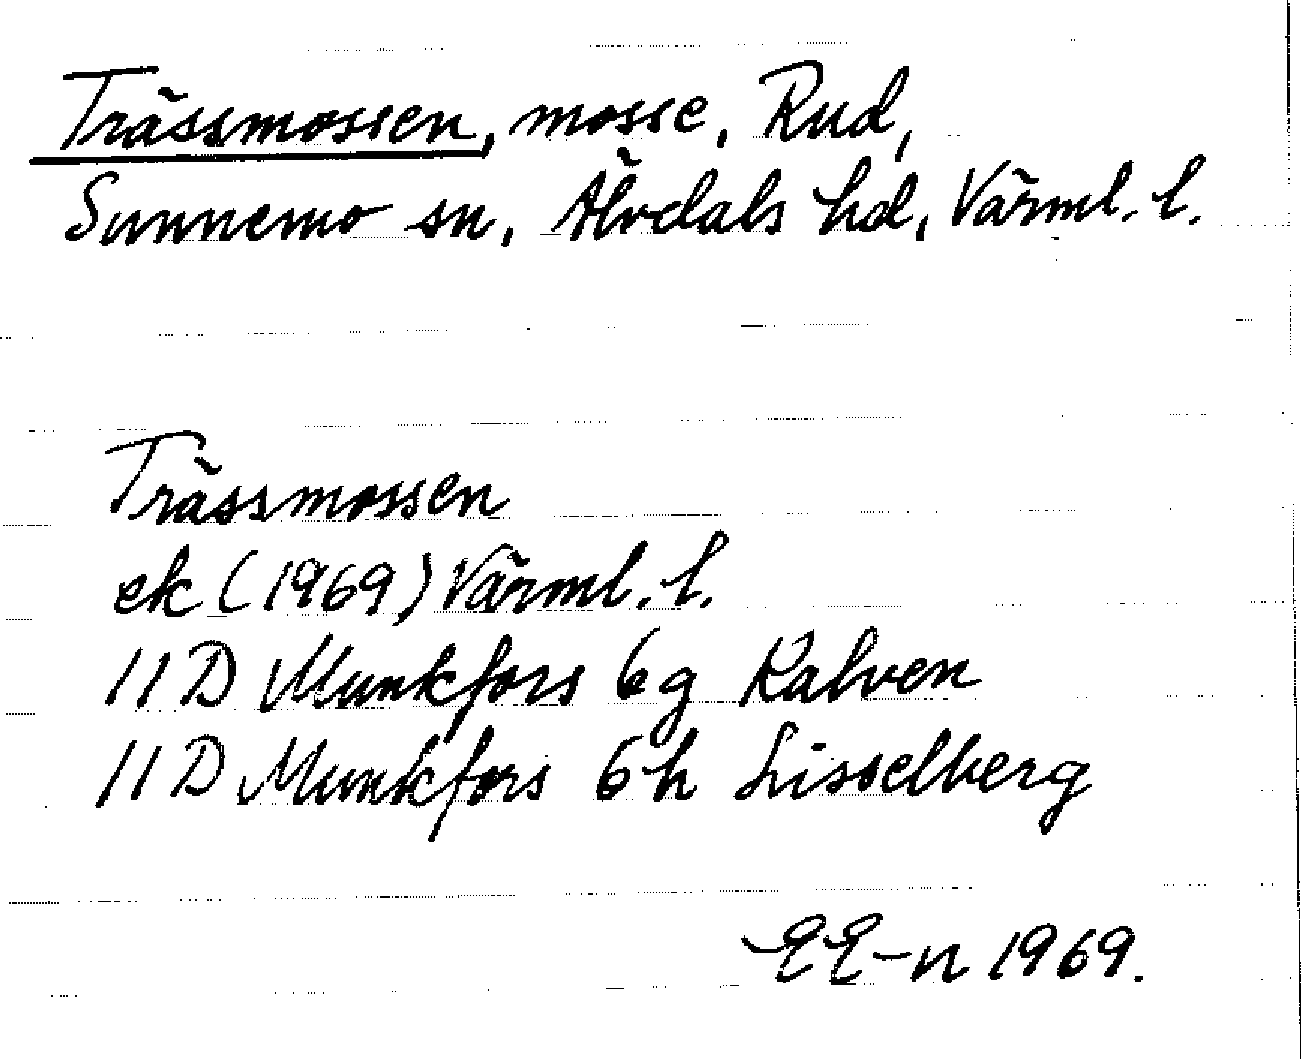 Trässmossen, mosse, Rud,
Sunnemo sn, Älvdals hd, Värml. l.
Trässmossen
ek (1969) Värml. l.
11 D Munkfors 6 g Kalven
11 D Munkfors 6 h Lisselberg
EE-n 1969.